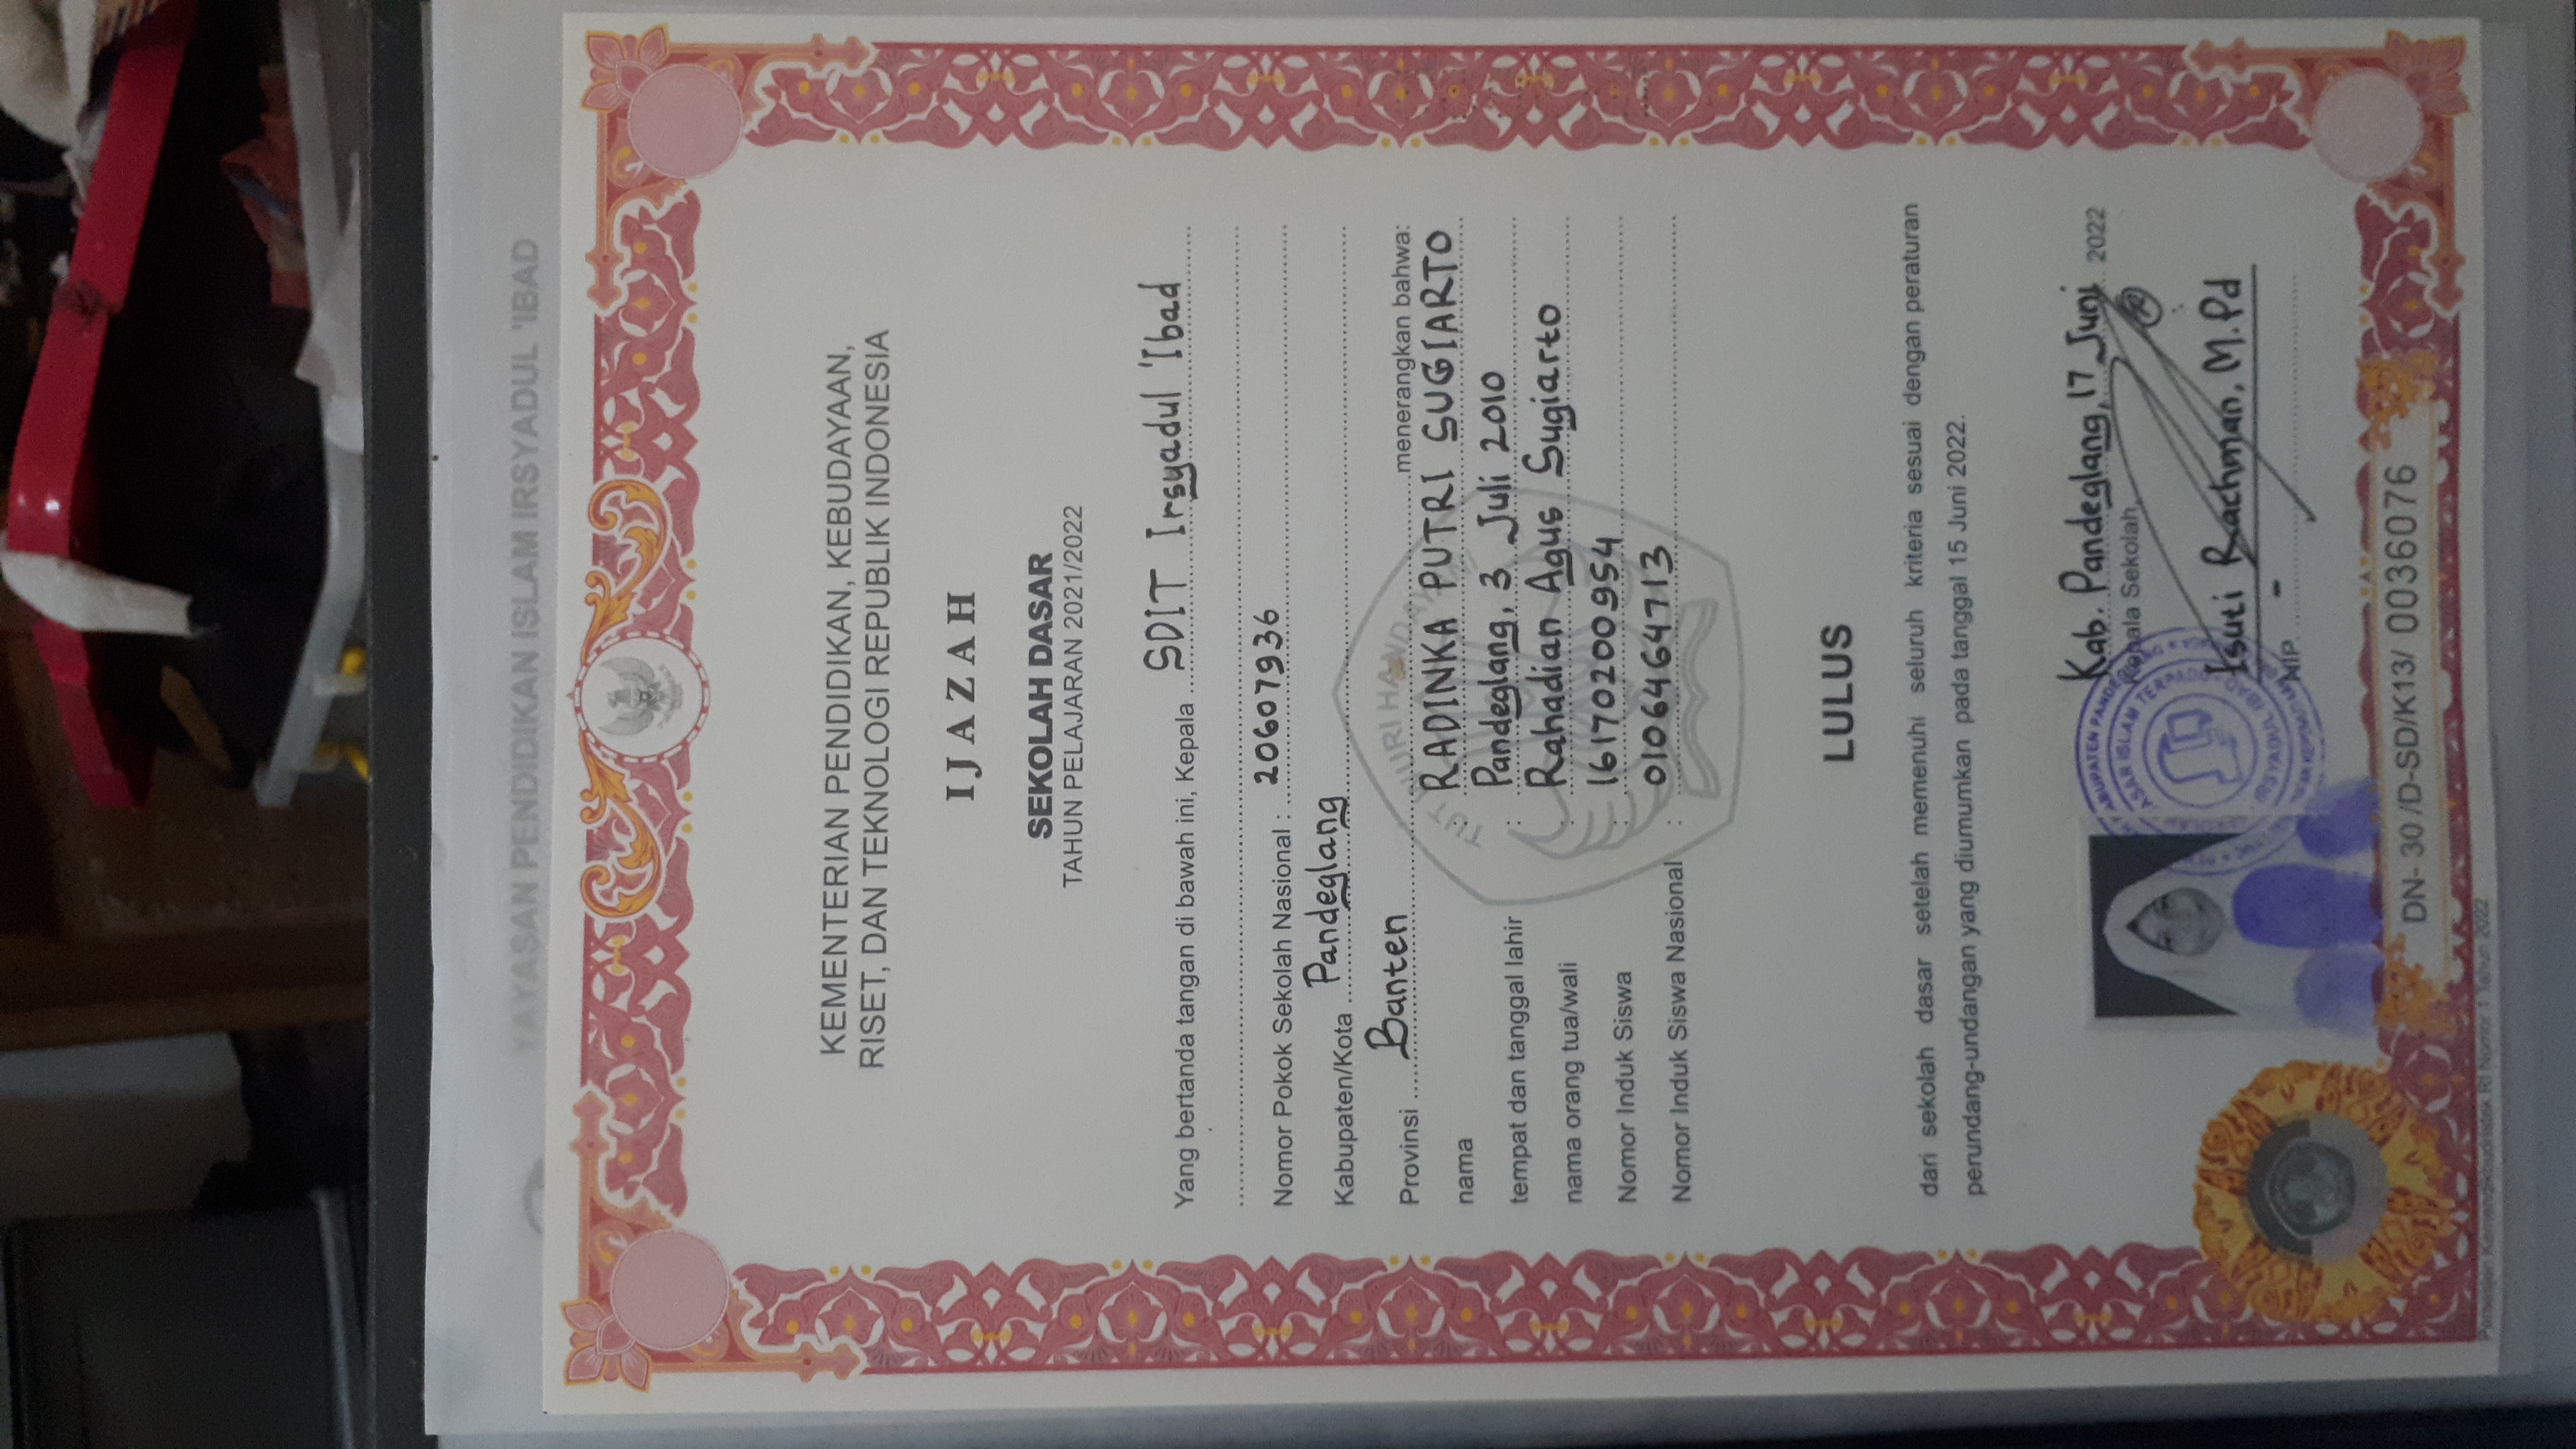 YAYASAN PENDIDIKAN ISLAM IRSYADUL 'IBAD
KEMENTERIAN PENDIDIKAN, KEBUDAYAAN,
RISET, DAN TEKNOLOGI REPUBLIK INDONESIA
IJAZAH
SEKOLAH DASAR
TAHUN PELAJARAN 2021/2022
Yang bertanda tangan di bawah ini, Kepala SDIT Irsyadul 'Ibad
Nomor Pokok Sekolah Nasional : 20607936
Kabupaten/Kota Pandeglang
Provinsi Banten menerangkan bahwa:
TUT WURI HANDAYANI
nama : RADINKA PUTRI SUGIARTO
tempat dan tanggal lahir : Pandeglang, 3 Juli 2010
nama orang tua/wali : Rahadian Agus Sugiarto
Nomor Induk Siswa : 16170200954
Nomor Induk Siswa Nasional : 0106464713
LULUS
dari sekolah dasar setelah memenuhi seluruh kriteria sesuai dengan peraturan
perundang-undangan yang diumumkan pada tanggal 15 Juni 2022.
Kab. Pandeglang, 17 Juni 2022
Kepala Sekolah,
KABUPATEN PANDEGLANG
DASAR ISLAM TERPADU
IRSYADUL IBAD
Isuti Rachman, M.Pd
NIP. -
DN- 30 /D-SD/K13/ 0036076
Persesjen Kemendikbudristek RI Nomor 1 Tahun 2022